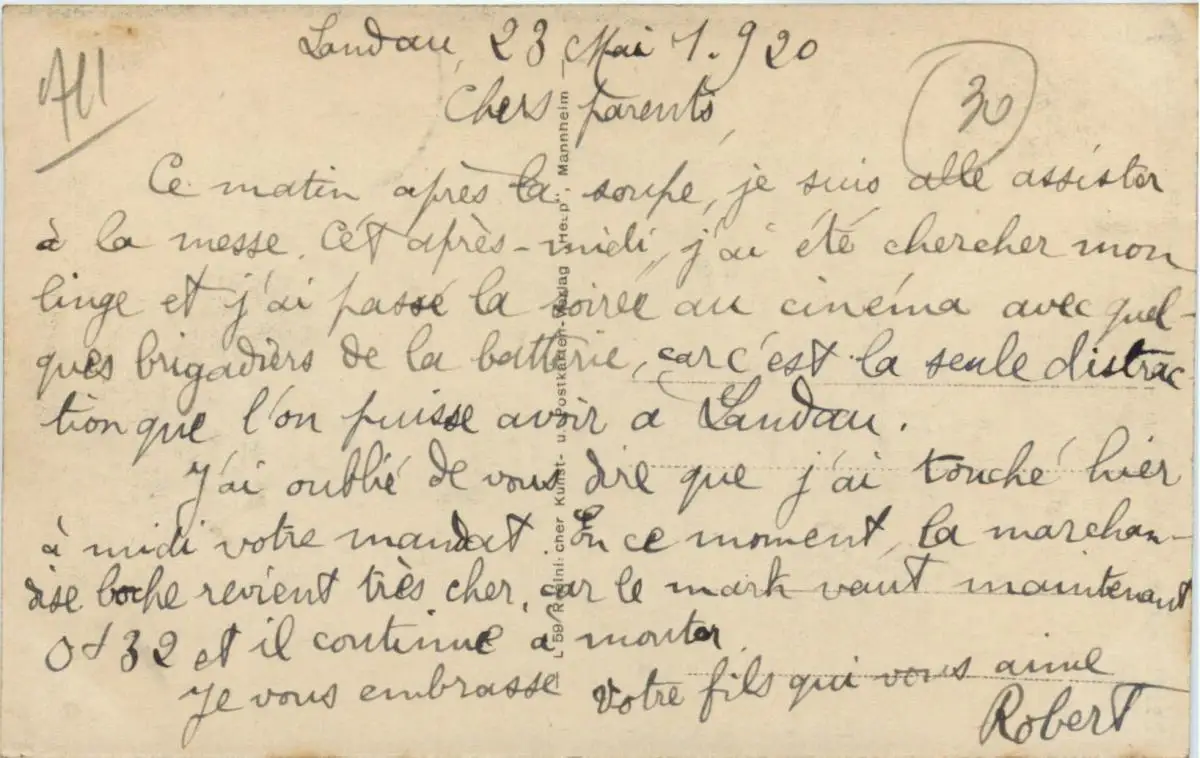 Landau, 23 Mai 1.920
All
30
Chers parents,
Ce matin après la soupe, je suis allé assister
à la messe. Cét après-midi, j'ai été chercher mon
linge et j'ai passé la soirée au cinéma avec quel-
ques brigadiers de la batterie, car c'est la seule distrac
tion que l'on puisse avoir à Landau.
J'ai oublié de vous dire que j'ai touché hier
à midi votre mandat. En ce moment, la marchan-
dise boche revient très cher, car le mark vaut maintenant
0f32 et il continue à monter.
Je vous embrasse Votre fils qui vous aime
Robert
L 59/ Rheinischer Kunst- u. Postkarten-Verlag „Help", Mannheim